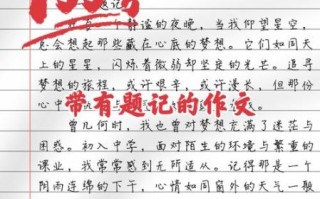 100分
题记
一个静谧的夜晚，当我仰望星空，
总会想起那些藏在心底的梦想。它们如同天
上的星星，闪烁着微弱却坚定的光芒。追寻
梦想的旅程，或许艰辛，或许漫长，但那份
心中
带有题记的作文
曾几何时，我也曾对梦想充满了迷茫与
困惑。初入中学，面对陌生的环境与繁重的
课业，我常常感到无所适从。记得那是一个
阴雨连绵的下午，心情如同窗外的天气一般